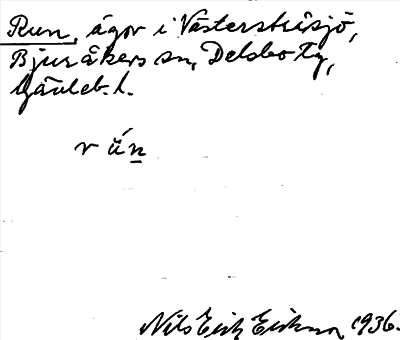 Run, ägor i Västerstråsjö,
Bjuråkers sn, Delsbo tg,
Gävleb. l.
rún
Nils Erik Erikson 1936.